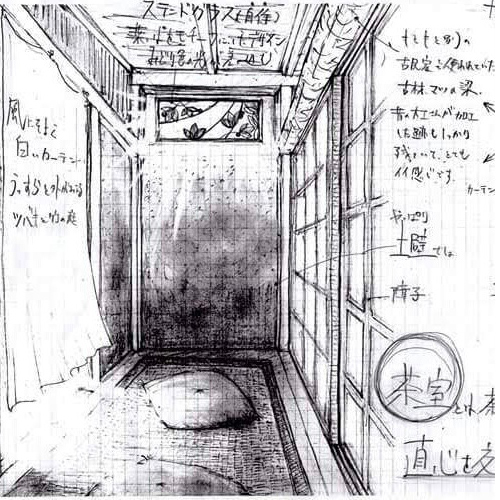 ステンドグラス(自作)
葉っぱをモチーフにしてデザイン
みどり色の光が
(もともと別)の
古民家で使われていた
古材マツの梁。
昔の大工さんが加工
した跡もしっかり
残っていて、とても
イイ感じです。
カーテン
風にそよぐ
白いカーテン
うっすらと外が
ツバキと竹の庭
やっぱり
土壁でしょ
障子
茶室
とは、茶
直心を交